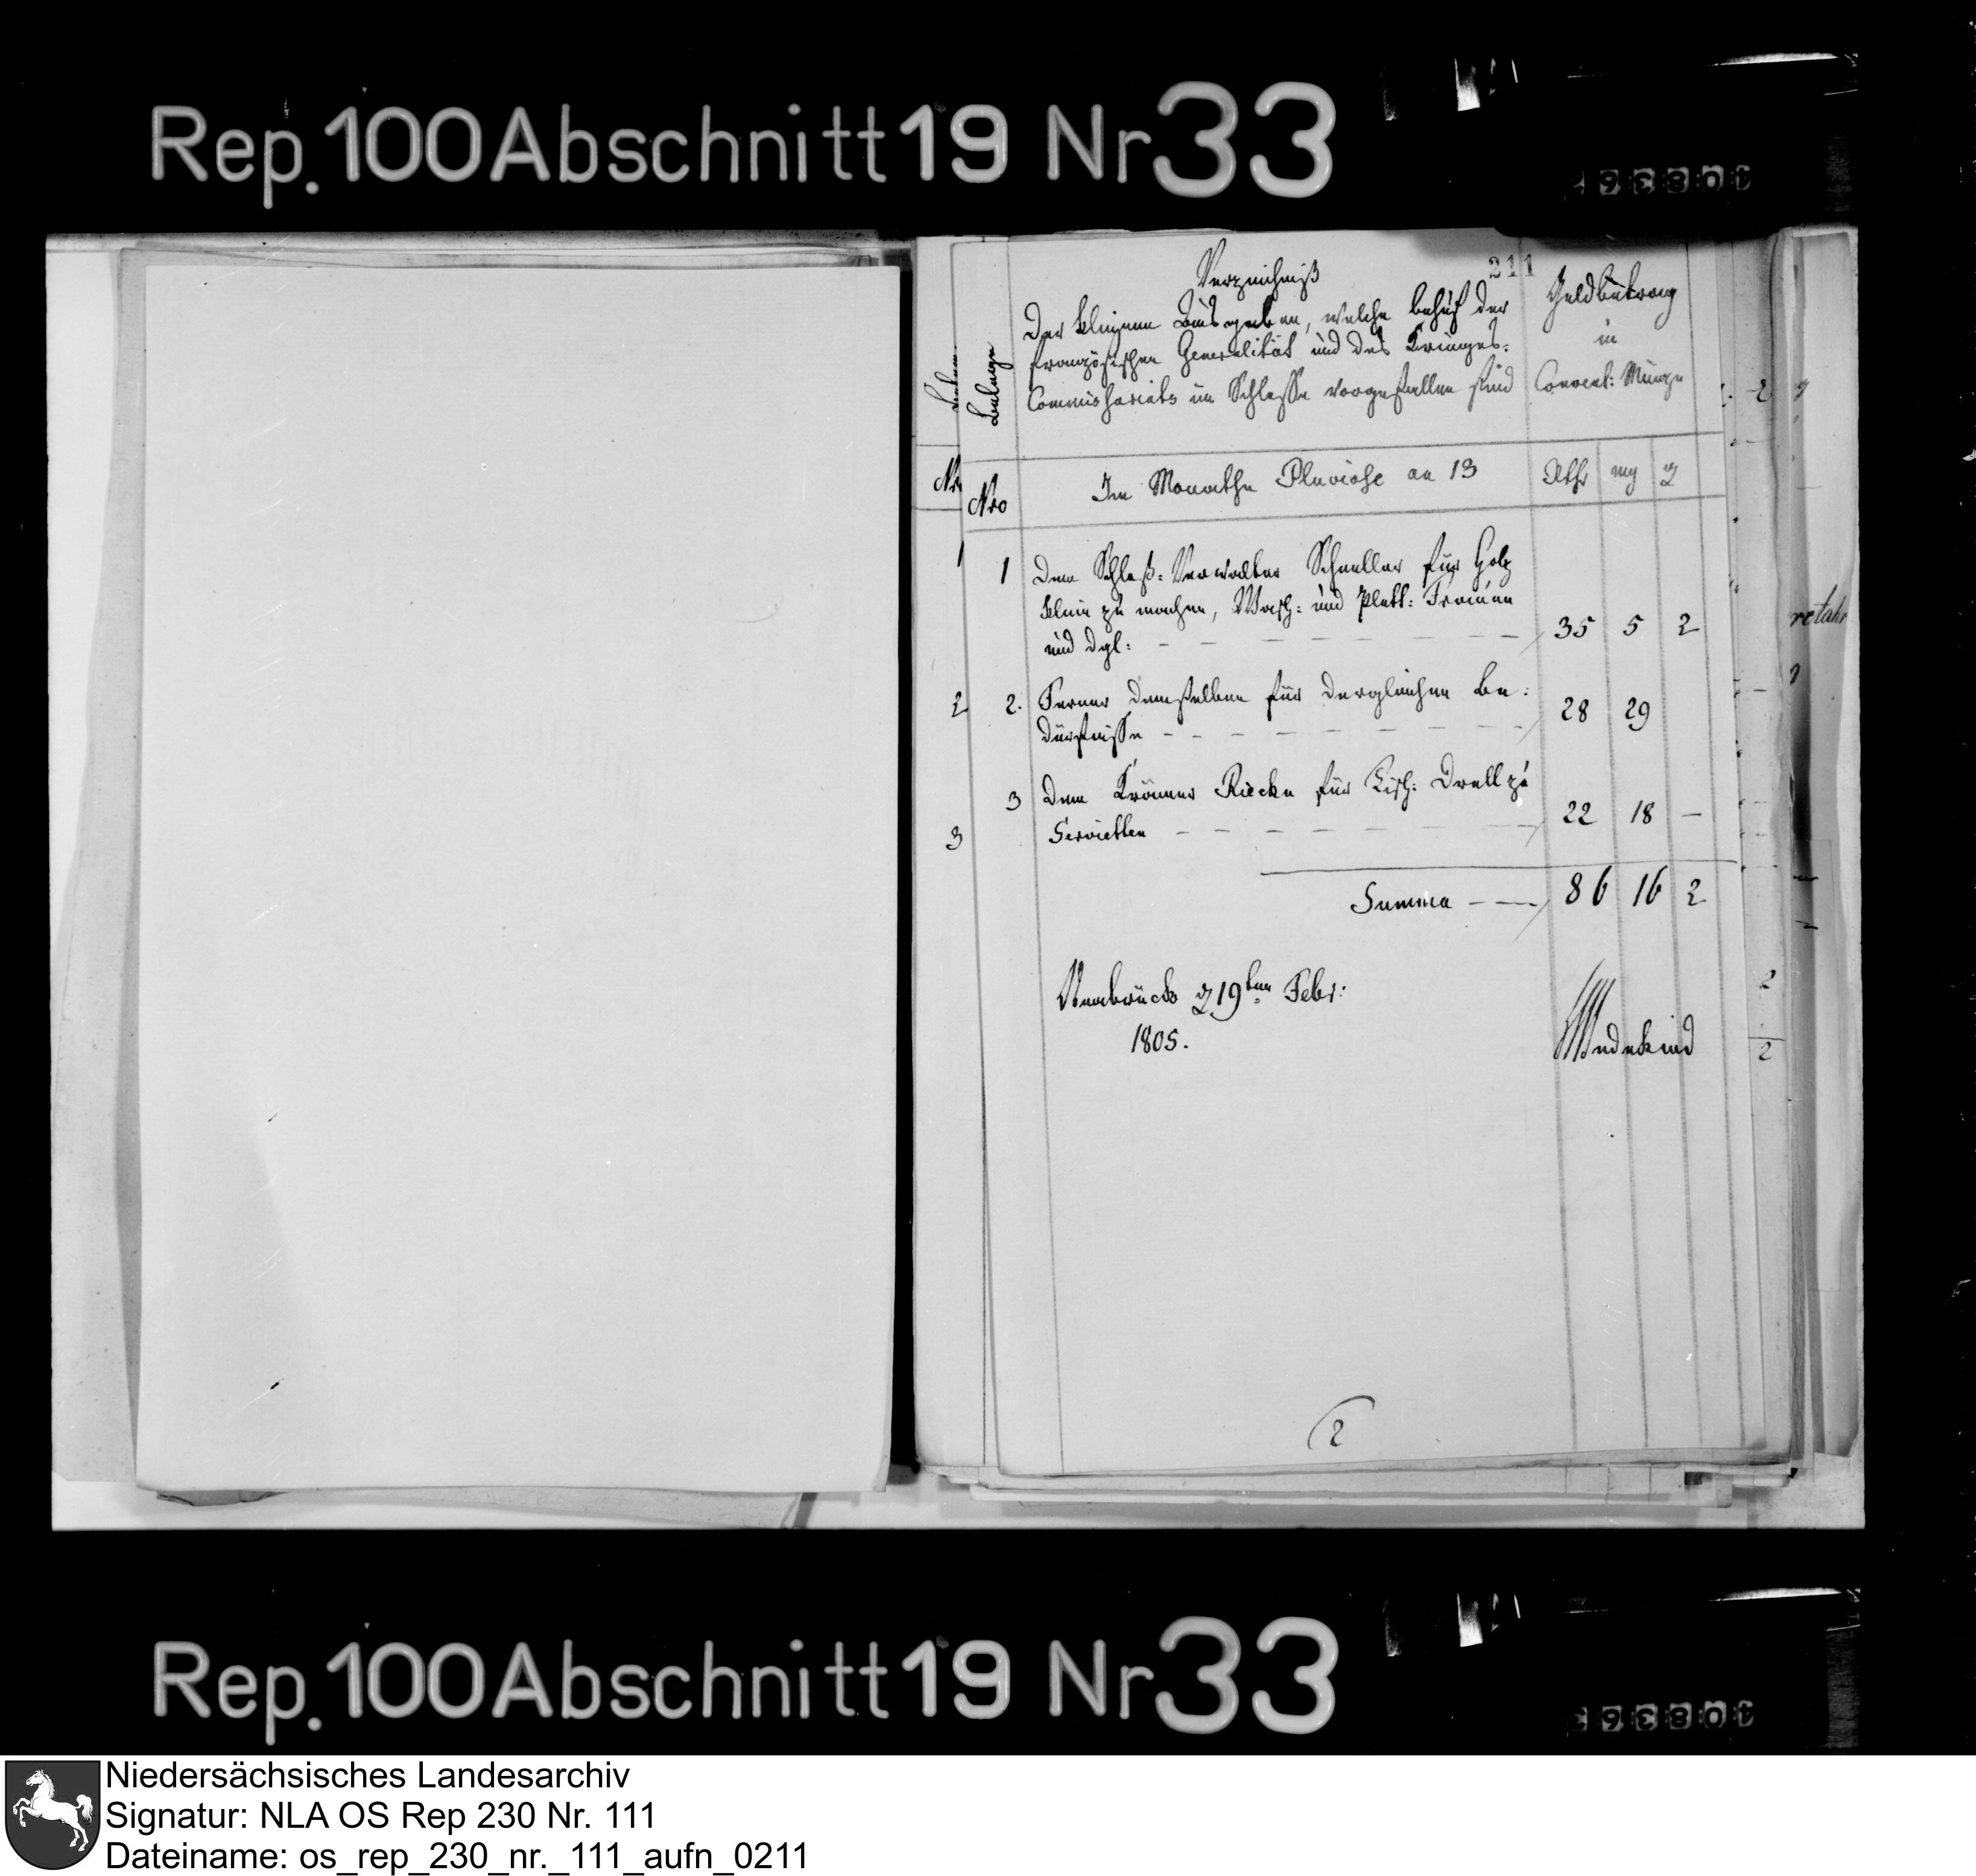 Rep. 100 Abschnitt 19 Nr 33
211
Verzeichniß
Der kleinen Ausgaben, welche behuf der
französischen Generalität und des Krieges-
Commissariats im Schlosse vorgefallen sind
Geldbetrag
in
Convent: Münze
Belege
Nro
Im Monathe Pluviose an 13
Rthr mg ₰
1 Dem Schloß-Verwalter Schneller für Holz
klein zu machen, Wasch- und Plett-Frauen
und dgl: 35 5 2
2. Ferner demselben für dergleichen Be-
dürfnisse 28 29
3 Dem Krämer Riecke für Tisch-Drell zu
Servietten 22 18 —
Summa 86 16 2
Osnabrück d 19ten Febr:
1805.
Wedekind
2
Nr
1
2
3
retahr
Rep. 100 Abschnitt 19 Nr 33
Niedersächsisches Landesarchiv
Signatur: NLA OS Rep 230 Nr. 111
Dateiname: os_rep_230_nr._111_aufn_0211